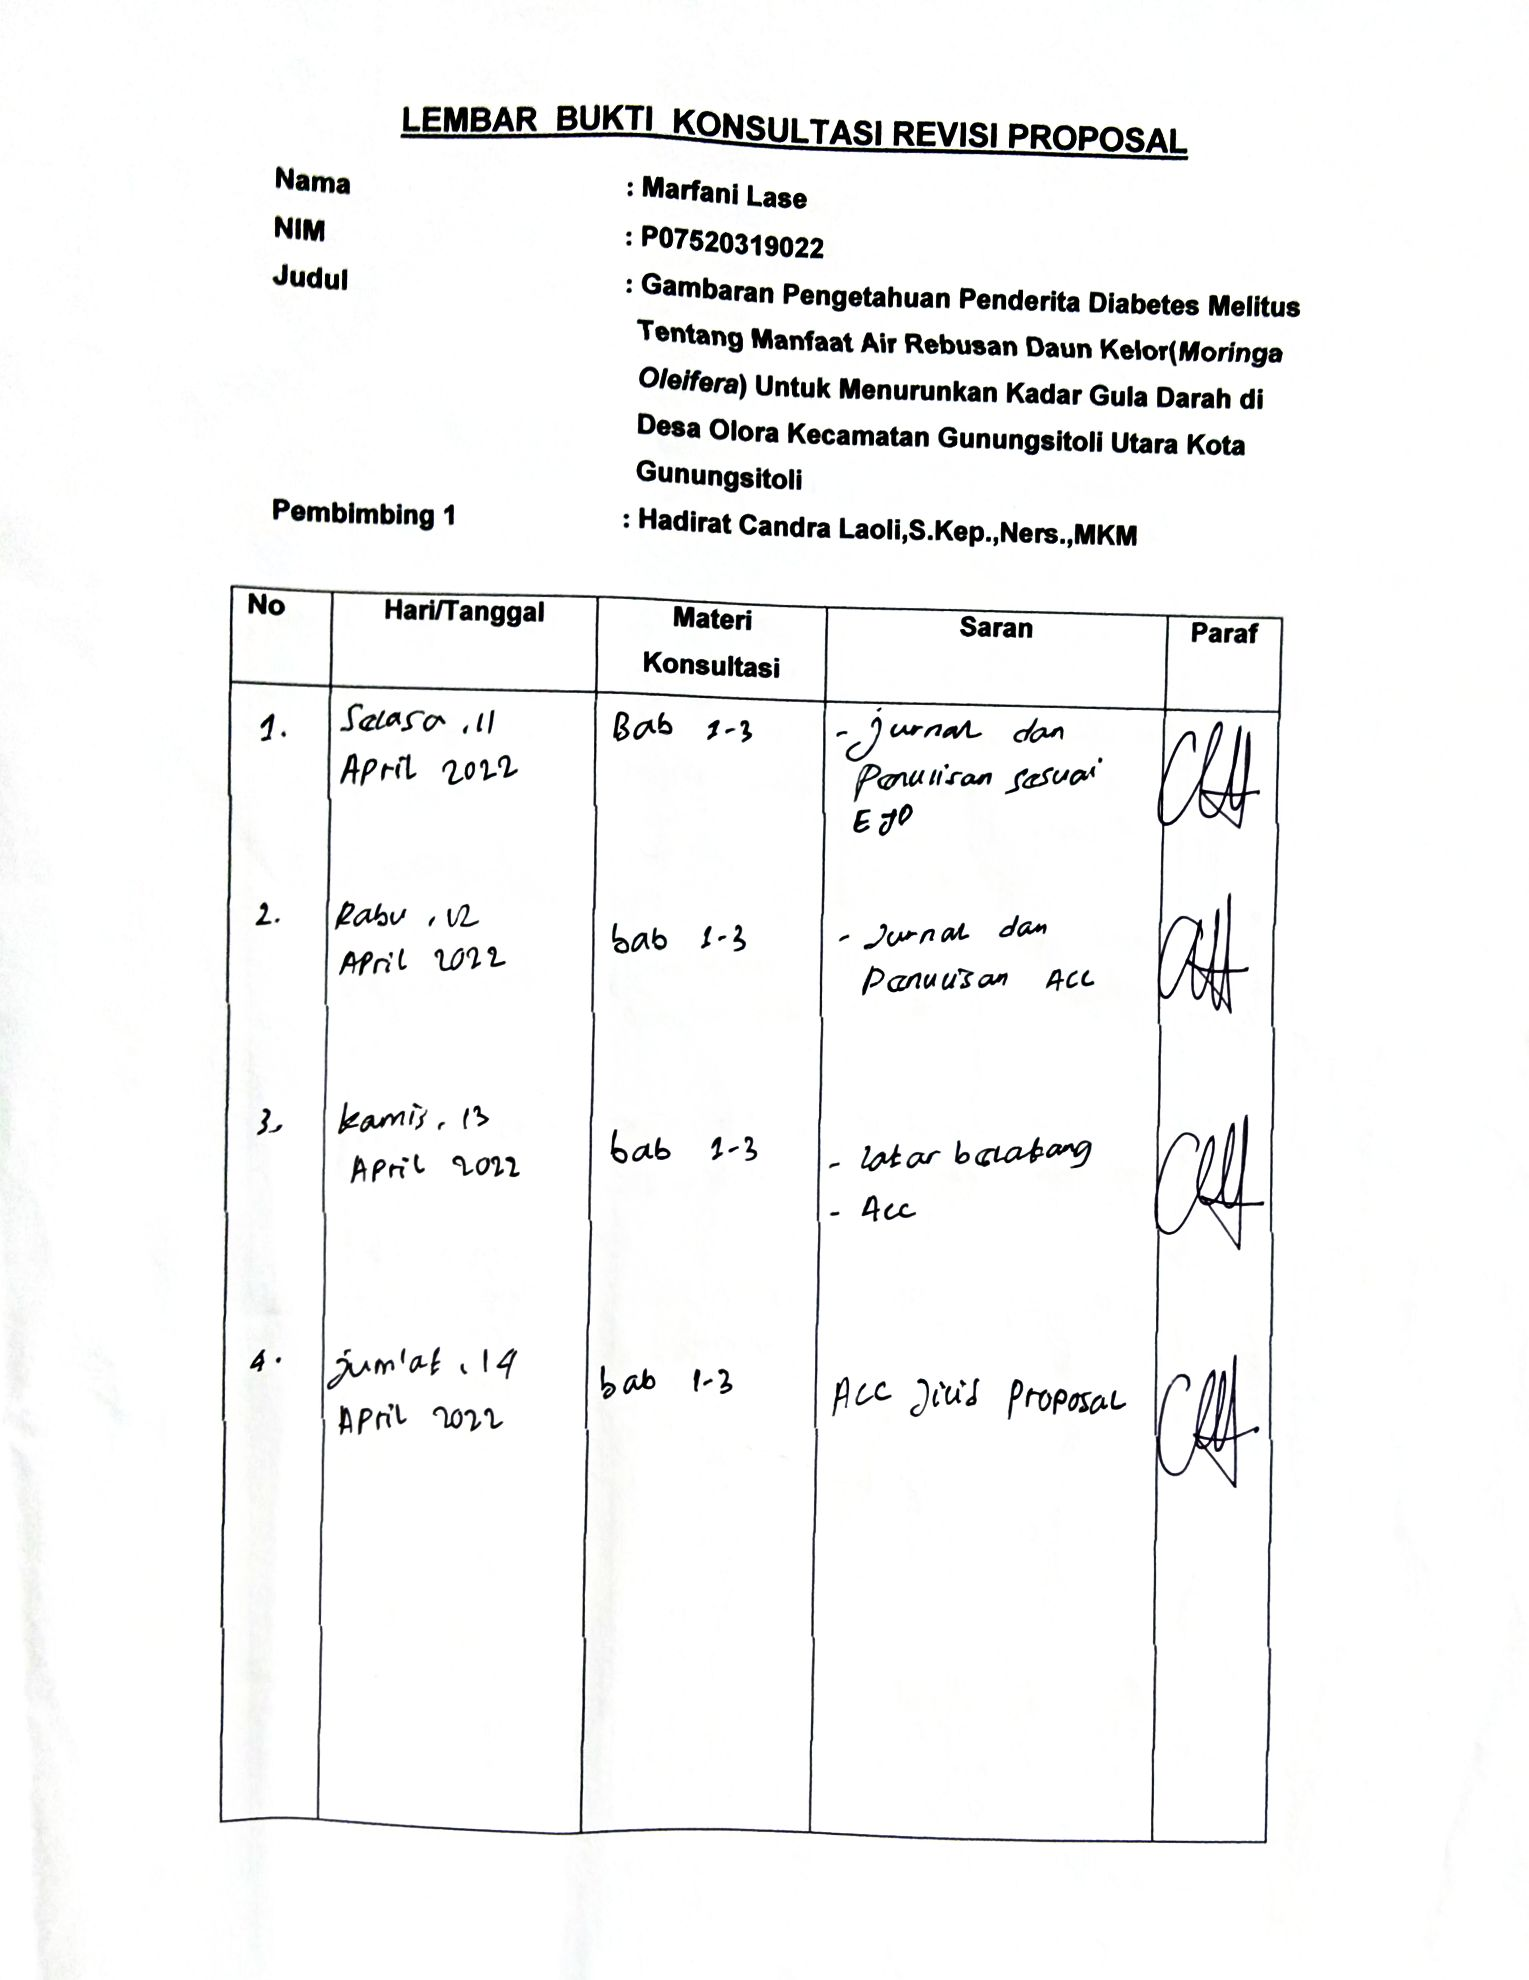 LEMBAR BUKTI KONSULTASI REVISI PROPOSAL
Nama : Marfani Lase
NIM : P07520319022
Judul : Gambaran Pengetahuan Penderita Diabetes Melitus
Tentang Manfaat Air Rebusan Daun Kelor(Moringa
Oleifera) Untuk Menurunkan Kadar Gula Darah di
Desa Olora Kecamatan Gunungsitoli Utara Kota
Gunungsitoli
Pembimbing 1 : Hadirat Candra Laoli,S.Kep.,Ners.,MKM
No Hari/Tanggal Materi Saran Paraf
Konsultasi
1. Selasa, 11 Bab 1-3 - jurnal dan
April 2022 Penulisan sesuai
EJD
2. Rabu, 12 bab 1-3 - Jurnal dan
April 2022 Penulisan ACC
3. kamis, 13 bab 1-3 - latar belakang
April 2022 - Acc
4. jum'at, 14 bab 1-3 Acc Jilid proposal
April 2022